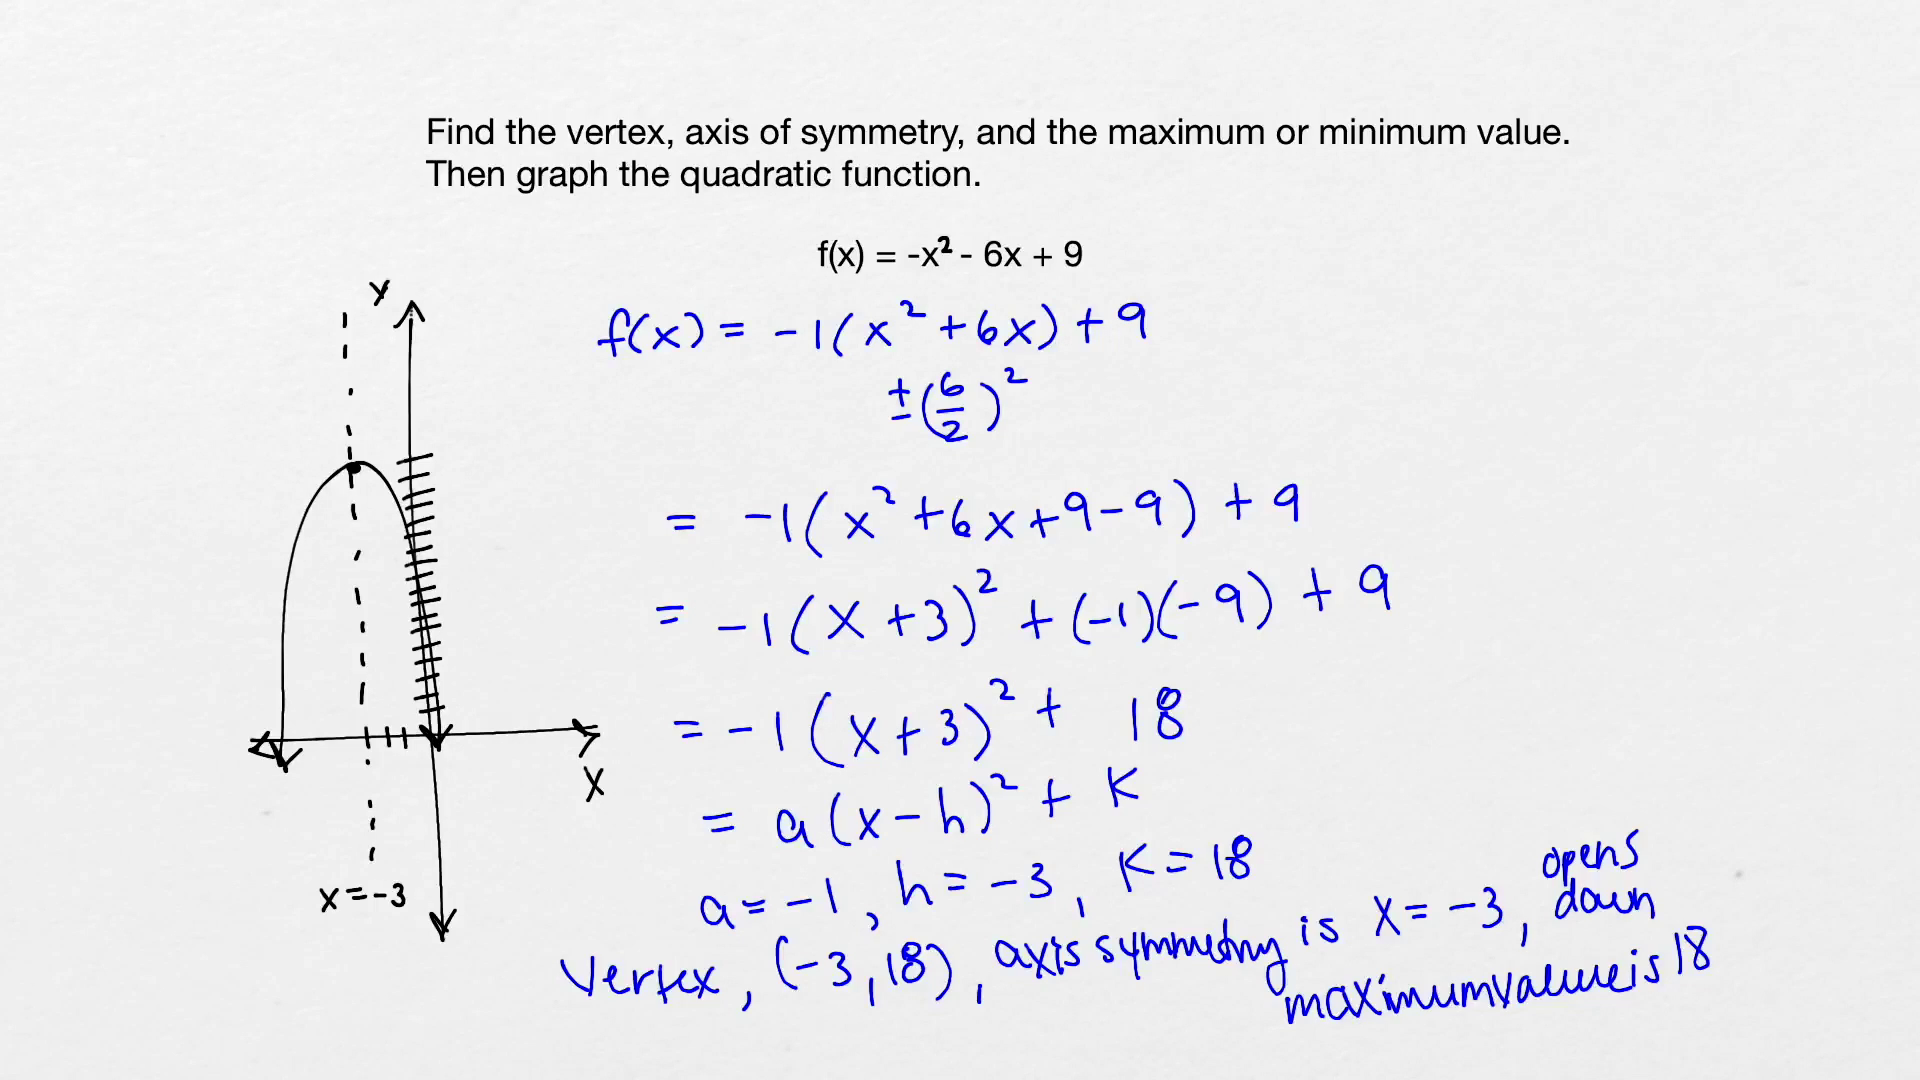 Find the vertex, axis of symmetry, and the maximum or minimum value.
Then graph the quadratic function.
f(x) = -x² - 6x + 9
y
f(x) = -1(x² + 6x) + 9
±(6/2)²
= -1(x² + 6x + 9 - 9) + 9
= -1(x + 3)² + (-1)(-9) + 9
= -1(x + 3)² + 18
x
= a(x - h)² + K
a = -1, h = -3, K = 18
x = -3
Vertex, (-3, 18), axis symmetry is x = -3, opens down
maximum value is 18